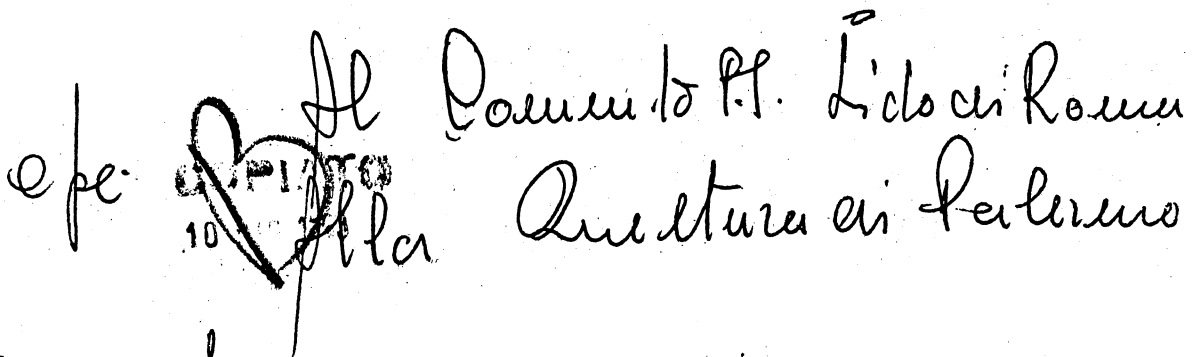 Al Commto P.S. Lido di Roma
e pc. COPIATO
10
Alla Questura di Palermo